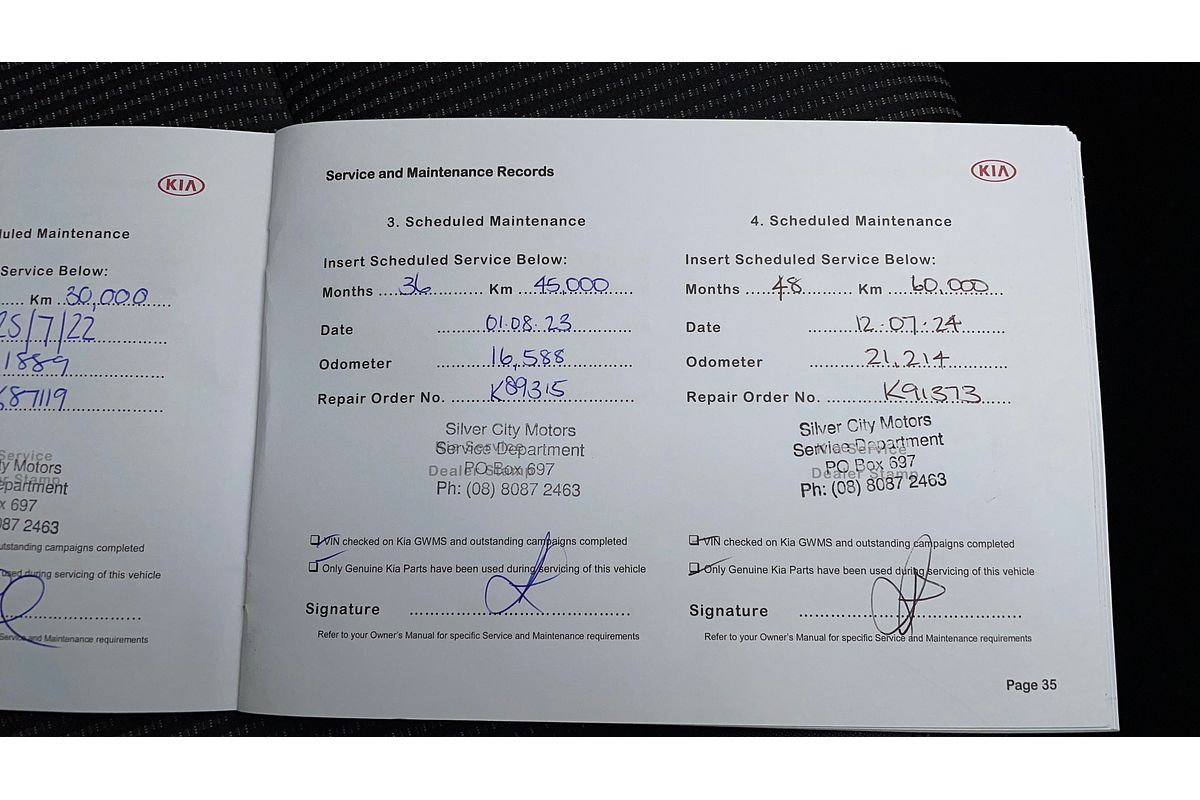 KIA
uled Maintenance
Service Below:
Km 30,000
25/7/22
1889
87119
Service
y Motors
r Stamp
epartment
x 697
087 2463
utstanding campaigns completed
used during servicing of this vehicle
Service and Maintenance requirements
Service and Maintenance Records
KIA
3. Scheduled Maintenance
Insert Scheduled Service Below:
Months 36 Km 45,000
Date 01.08.23
Odometer 16,588
Repair Order No. K89315
Silver City Motors
Kia Service
Service Department
Dealer Stamp
PO Box 697
Ph: (08) 8087 2463
VIN checked on Kia GWMS and outstanding campaigns completed
Only Genuine Kia Parts have been used during servicing of this vehicle
Signature
Refer to your Owner's Manual for specific Service and Maintenance requirements
4. Scheduled Maintenance
Insert Scheduled Service Below:
Months 48 Km 60,000
Date 12.07.24
Odometer 21,214
Repair Order No. K91373
Silver City Motors
Kia Service
Service Department
Dealer Stamp
PO Box 697
Ph: (08) 8087 2463
VIN checked on Kia GWMS and outstanding campaigns completed
Only Genuine Kia Parts have been used during servicing of this vehicle
Signature
Refer to your Owner's Manual for specific Service and Maintenance requirements
Page 35